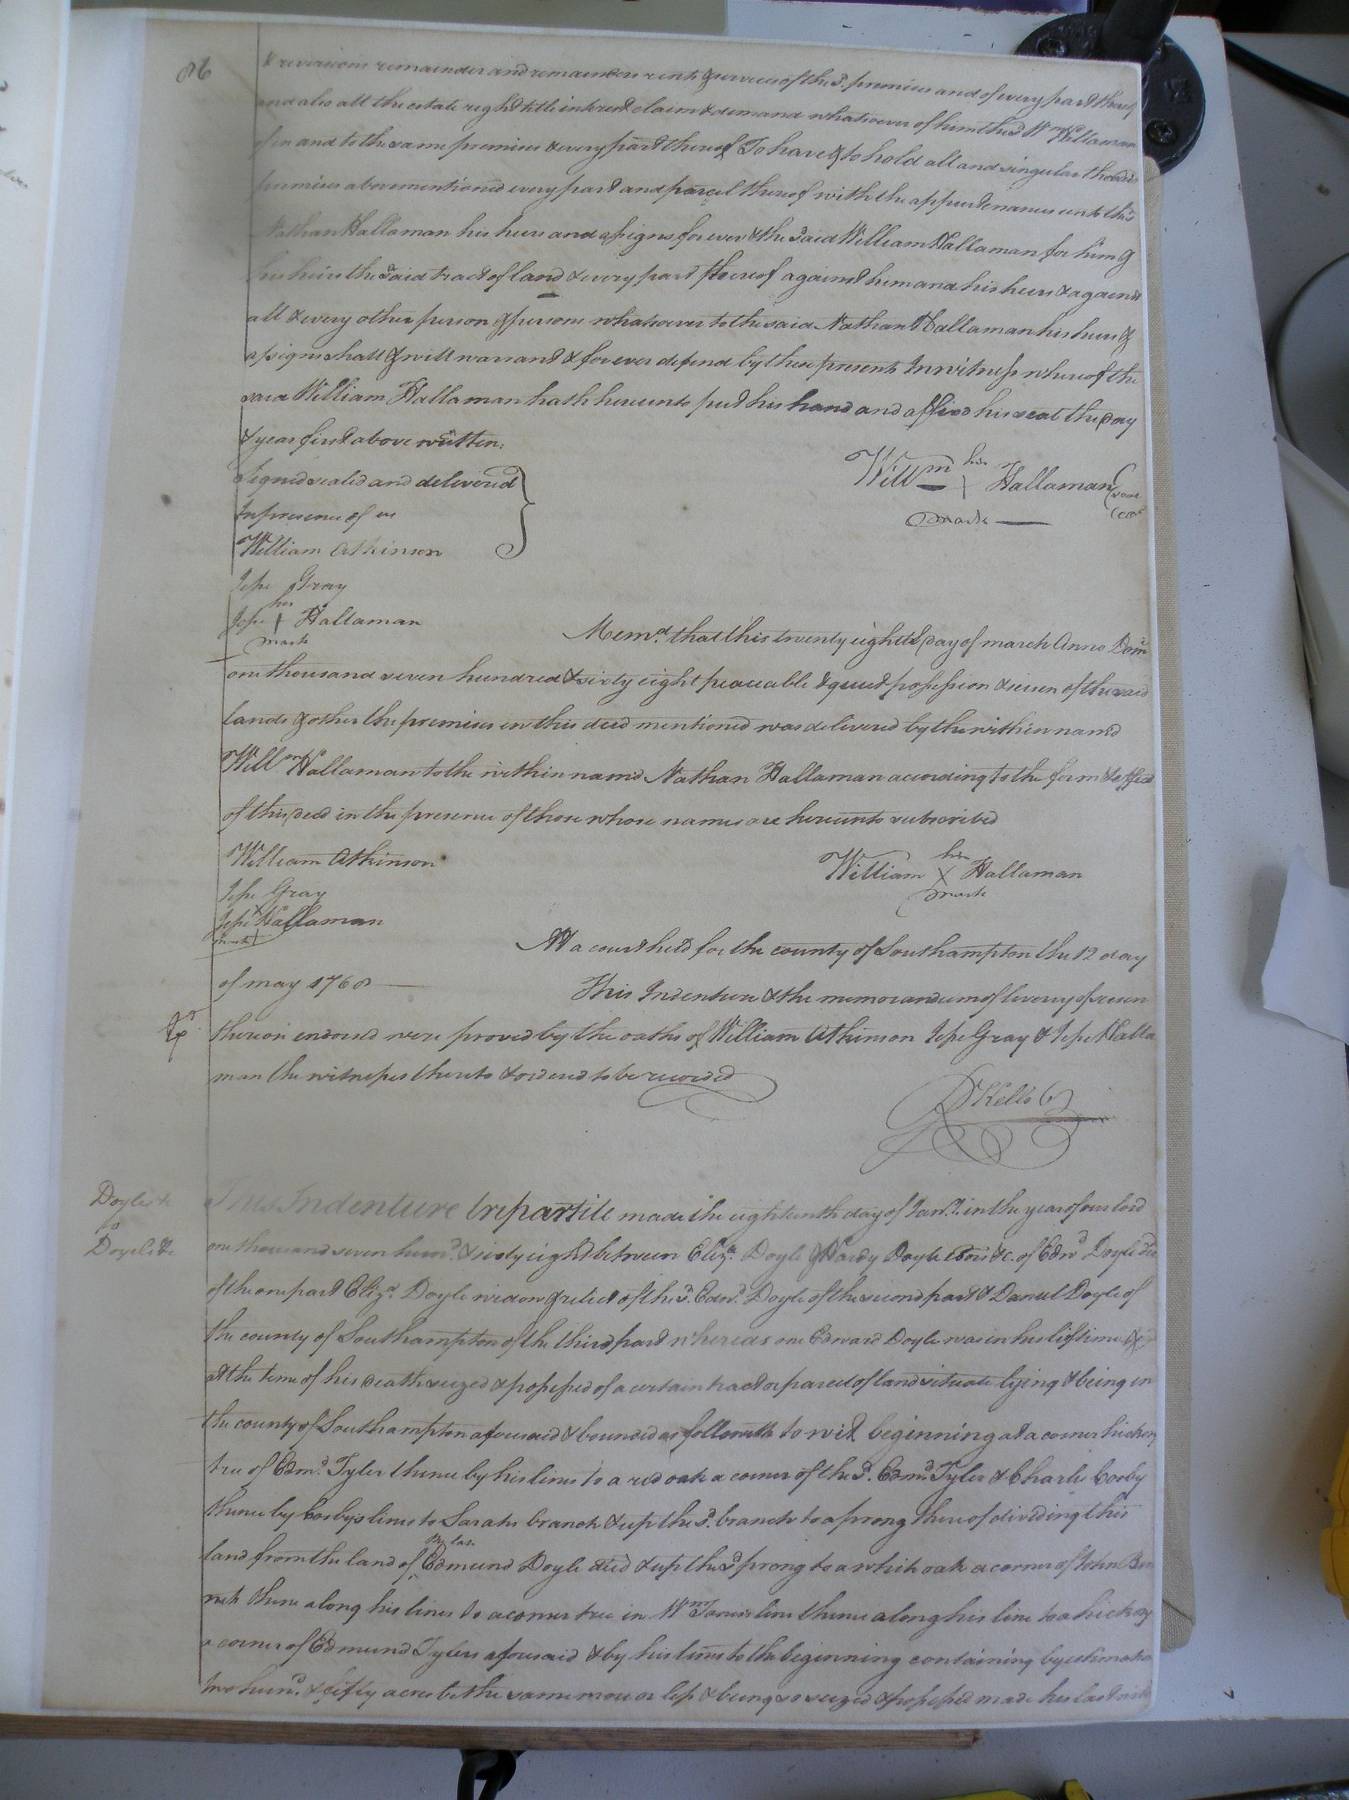 86
& reversions remainder and remainders rents & services of the sd. premises and of every part thereof
and also all the estate right title interest claim & demand whatsoever of him the sd Wm Hallaman
of in and to the same premises & every part thereof To have & to hold all and singular the
premises abovementioned every part and parcel thereof with the appurtenances unto the sd
Nathan Hallaman his heirs and assigns forever & the said William Hallaman for him &
his heirs the said tract of land & every part thereof against him and his heirs & against
all & every other person & persons whatsoever to the said Nathan Hallaman his heirs &
assigns shall & will warrant & forever defend by these presents In witness whereof the
said William Hallaman hath hereunto put his hand and affixd his seal the day
& year first above written.
Signed sealed and delivered
In presence of us
William Atkinson
Jesse Gray
his
Jesse Hallaman
mark
his
Willm Hallaman
mark
Memd. that this twenty eighth day of march Anno Dom
one thousand seven hundred & sixty eight peaceable & quiet possession & seisen of the said
lands & other the premises in this deed mentioned was delivered by the within named
Willm Hallaman to the within named Nathan Hallaman according to the form & effect
of this deed in the presence of those whose names are hereunto subscribed
William Atkinson
Jesse Gray
Jesse X Hallaman
mark
his
William X Hallaman
mark
At a court held for the county of Southampton the 12 day
of may 1768
This Indenture & the memorandum of livery of seisen
thereon endorsed were proved by the oaths of William Atkinson Jesse Gray & Jesse Halla
man the witnesses thereto & ordered to be recorded
Doyle &c
to
Doyle &c
This Indenture tripartite made the eighteenth day of Jany. in the year of our lord
one thousand seven hund. & sixty eight between Eliza. Doyle & Hardy Doyle &c. of Edwd Doyle
of the one part Eliza. Doyle widow & relict of the sd. Edwd. Doyle of the second part & Daniel Doyle of
the county of Southampton of the third part whereas one Edward Doyle was in his lifetime &
at the time of his death seized & possessed of a certain tract or parcel of land situate lying & being in
the county of Southampton aforesaid & bounded as followeth to wit beginning at a corner hickory
tree of Edmd. Tyler thence by his lines to a red oak a corner of the sd. Edmd. Tyler & Charles Cosby
thence by Cosbys lines to Sarahs branch & up the sd. branch to a prong thereof dividing this
land from the land of Edmund Doyle decd & up the sd prong to a white oak a corner of John
thence along his lines to a corner tree in Wm line thence along his line to a hickory
a corner of Edmund Tylers aforesaid & by his lines to the beginning containing by estimation
two hund. & fifty acres be the same more or less & being so seized & possessed made his last